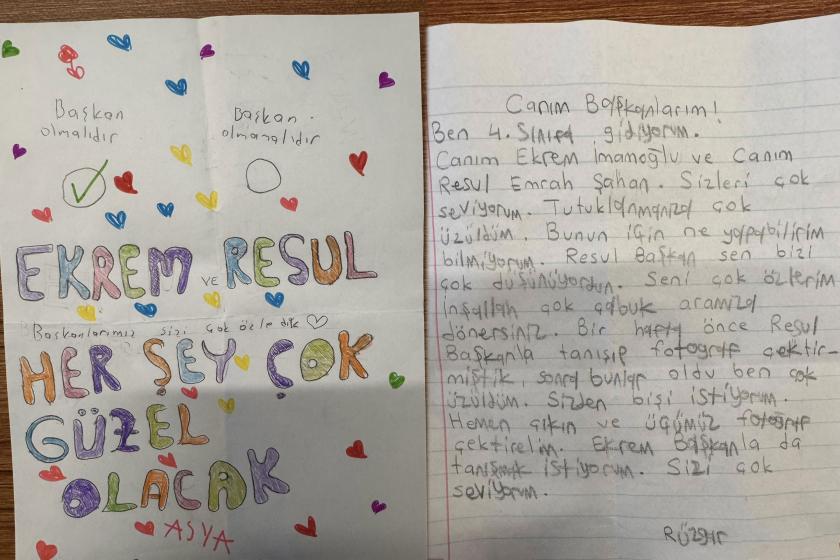 Başkan
olmalıdır
Başkan
olmamalıdır
EKREM VE RESUL
Başkanlarımız sizi çok özledik
HER ŞEY ÇOK
GÜZEL
OLACAK
ASYA
Canım Başkanlarım!
Ben 4. Sınıfa gidiyorum.
Canım Ekrem İmamoğlu ve Canım
Resul Emrah Şahan. Sizleri çok
seviyorum. Tutuklanmanıza çok
üzüldüm. Bunun için ne yapabilirim
bilmiyorum. Resul Başkan sen bizi
çok düşünüyordun. Seni çok özlerim
inşallah çok çabuk aramıza
dönersiniz. Bir hafta önce Resul
Başkanla tanışıp fotoğraf çektir-
miştik, sonra bunlar oldu ben çok
üzüldüm. Sizden bişi istiyorum.
Hemen çıkın ve üçümüz fotoğraf
çektirelim. Ekrem Başkanla da
tanışmak istiyorum. Sizi çok
seviyorum.
Rüzgar